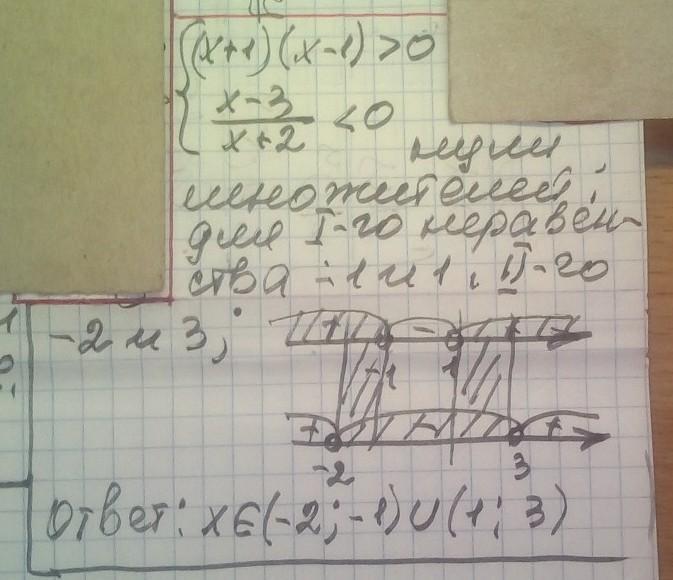 (x+1)(x-1)>0
x-3
x+2
<0
нули
множителей:
для I-го неравен-
ства -1 и 1, II-го
-2 и 3;
+ - +
-1 1
+ - +
-2 3
Ответ: x∈(-2;-1)∪(1;3)